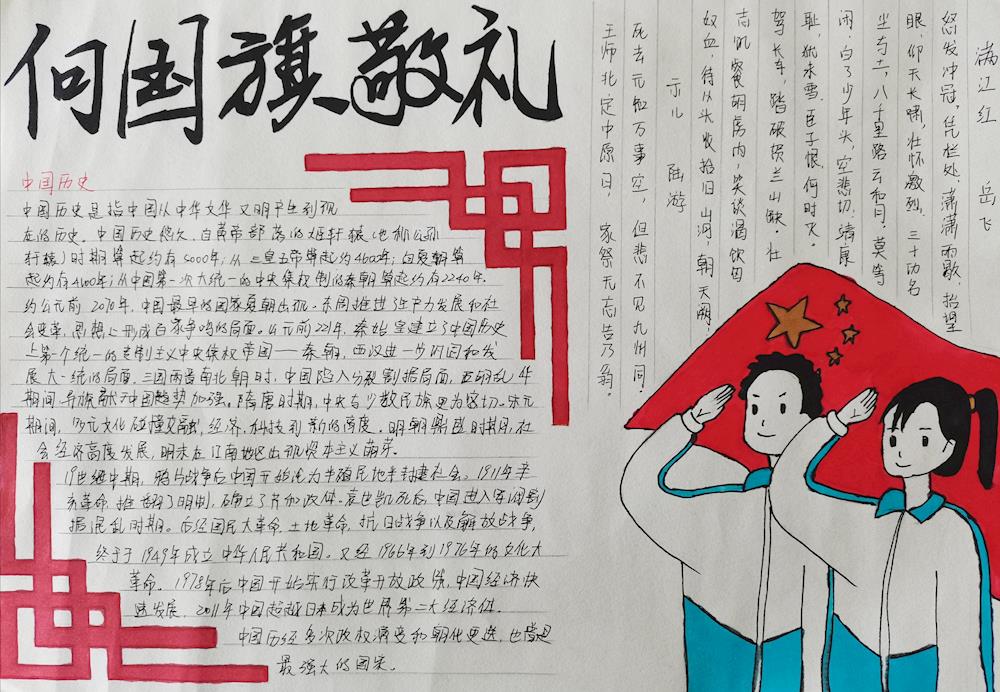 向国旗敬礼
中国历史
中国历史是指中国从中华文华文明产生到现
在的历史。中国历史悠久,自黄帝部落的姬轩辕(也称公孙
轩辕)时期算起约有5000年;从三皇五帝算起约有4600年;自夏朝算
起约有4100年;从中国第一次大统一的中央集权制的秦朝算起约有2240年。
约公元前2070年,中国最早的国家夏朝出现。东周推进了生产力发展和社
会变革,思想上形成百家争鸣的局面。公元前221年,秦始皇建立了中国历史
上第个统一的专制主义中央集权帝国——秦朝,西汉进一步巩固和发
展大一统的局面,三国两晋南北朝时,中国陷入分裂割据局面,五胡乱华
期间,中国趋势加强。隋唐时期,中央与少数民族更为密切。宋元
期间,多元文化碰撞交融,经济、科技到新的高度,明朝鼎盛时期,社
会经济高度发展,明末在江南地区出现资本主义萌芽。
19世纪中期,鸦片战争后中国开始沦为半殖民地半封建社会。1911年辛
亥革命推翻了明制,确立了共和政体。袁世凯死后,中国进入军阀割
据混乱时期。后经国民大革命,土地革命,抗日战争以及解放战争,
终于于1949年成立中华人民共和国。又经1966年到1976年的文化大
革命。1978年后中国开始实行改革开放政策,中国经济快
速发展。2011年中国超越日本成为世界第二大经济体。
中国历经多次政权演变和朝代更迭,也曾是
最强大的国家。
满江红 岳飞
怒发冲冠,凭栏处,潇潇雨歇,抬望
眼,仰天长啸,壮怀激烈。三十功名
尘与土,八千里路云和月。莫等
闲,白了少年头,空悲切。靖康
耻,犹未雪,臣子恨,何时灭。
驾长车,踏破贺兰山缺。壮
志饥餐胡虏肉,笑谈渴饮匈
奴血,待从头收拾旧山河,朝天阙。
示儿 陆游
死去元知万事空,但悲不见九州同。
王师北定中原日,家祭无忘告乃翁。